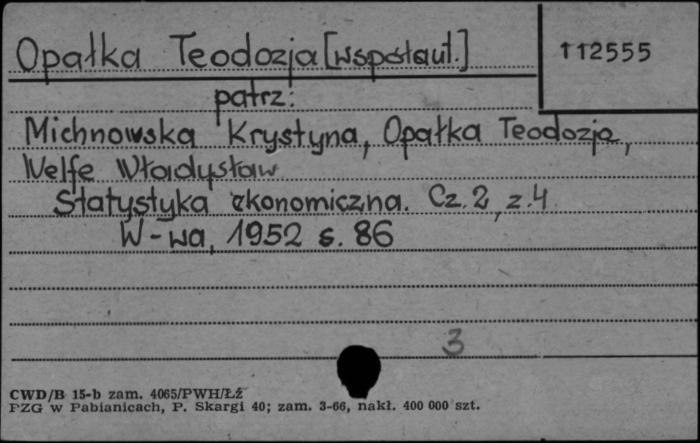 Opałka Teodozja [współaut.]
112555
patrz:
Michnowska Krystyna, Opałka Teodozja,
Welfe Władysław
Statystyka ekonomiczna. Cz. 2, z. 4
W-wa, 1952 s. 86
3
CWD/B 15-b zam. 4065/PWH/Łź
PZG w Pabianicach, P. Skargi 40; zam. 3-66, nakł. 400 000 szt.